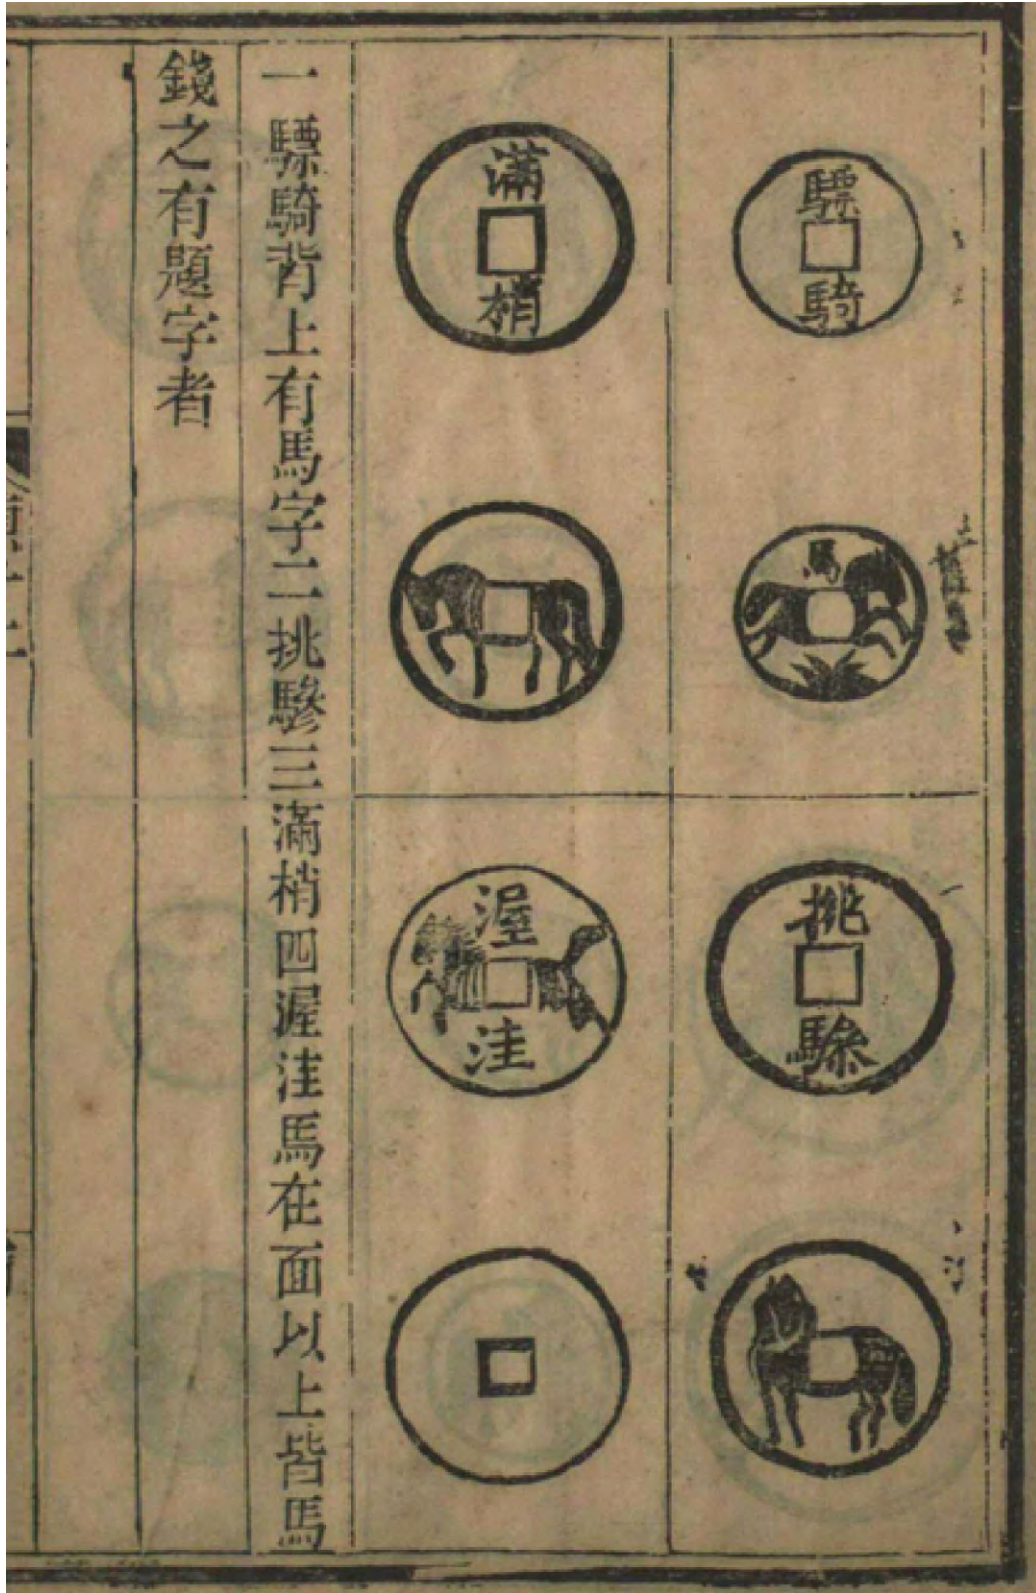 驃騎
馬
挑驂
滿梢
渥洼
一驃騎背上有馬字二挑驂三滿梢四渥洼馬在面以上皆馬
錢之有題字者